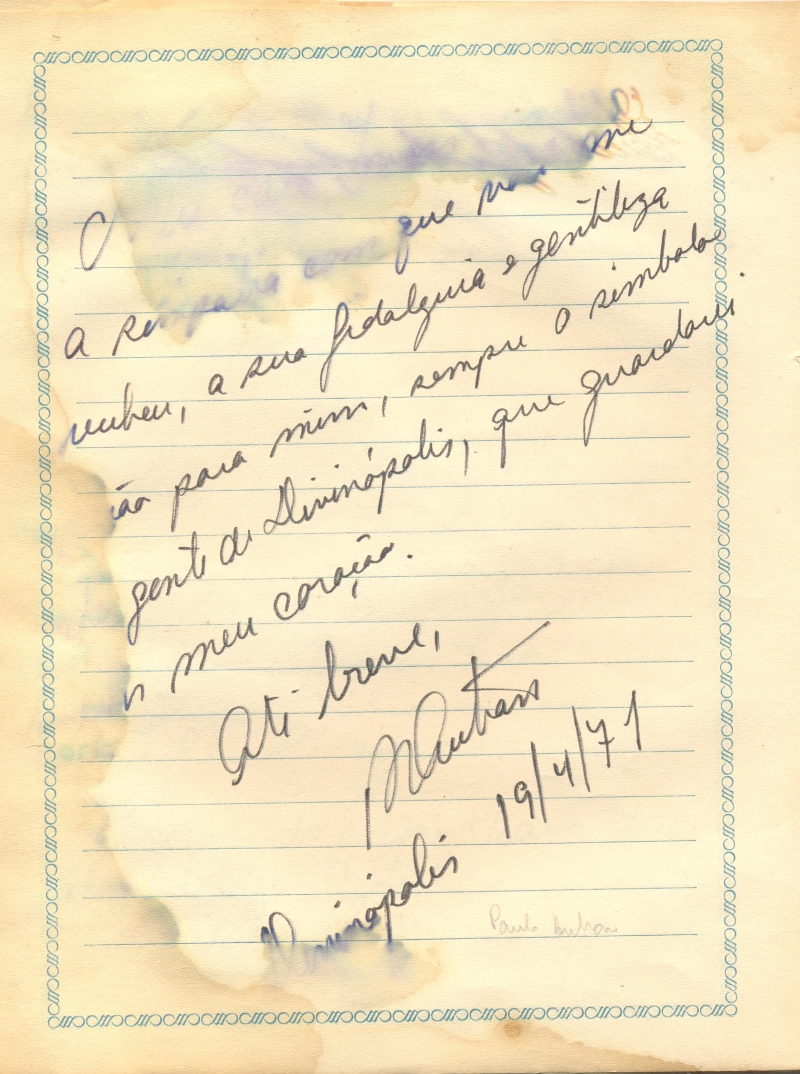 O
a simpatia com que me
recebeu, a sua fidalguia e gentileza
rão para mim, sempre o simbolo
gente de Divinópolis, que guardarei
meu coração.
Até breve,
PAutran
Divinópolis 19/4/71
Paulo Autran